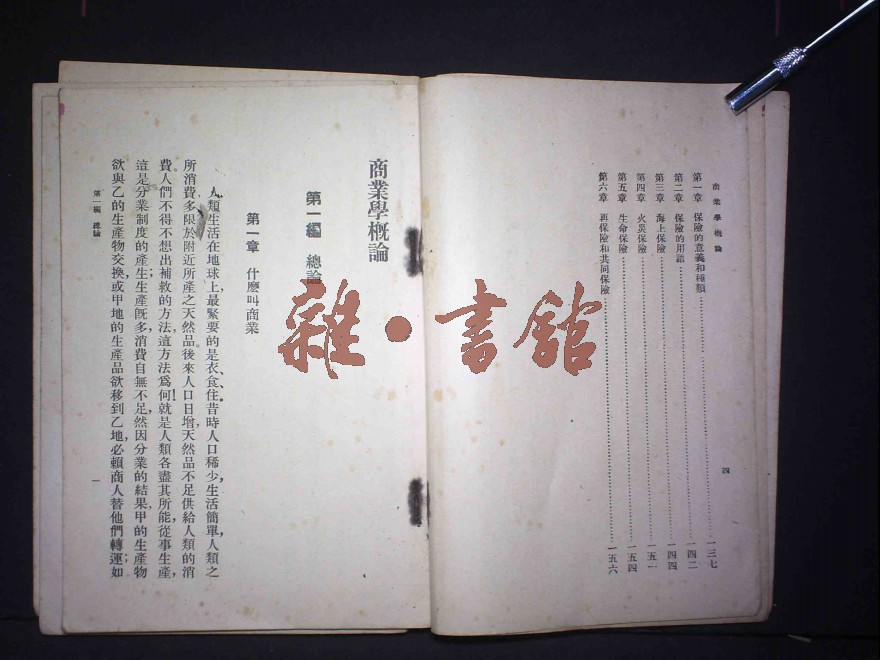 商業學概論
第一章 保險的意義和種類……一三七
第二章 保險的用語……一四二
第三章 海上保險……一四四
第四章 火災保險……一五一
第五章 生命保險……一五四
第六章 再保險和共同保險……一五六
四
商業學概論
第一編 總論
第一章 什麼叫商業
人類生活在地球上最緊要的是衣、食、住昔時人口稀少，生活簡單，人類之
所消費多限於附近所產之天然品。後來人口日增，天然品不足供給人類的消
費。人們不得不想出補救的方法，這方法爲何！就是人類各盡其所能，從事生產，
這是分業制度的產生。生產既多，消費自無不足，然因分業的結果，甲的生產物
欲與乙的生產物交換，或甲地的生產品欲移到乙地，必賴商人替他們轉運；如
第一編 總論
一
雜·書館